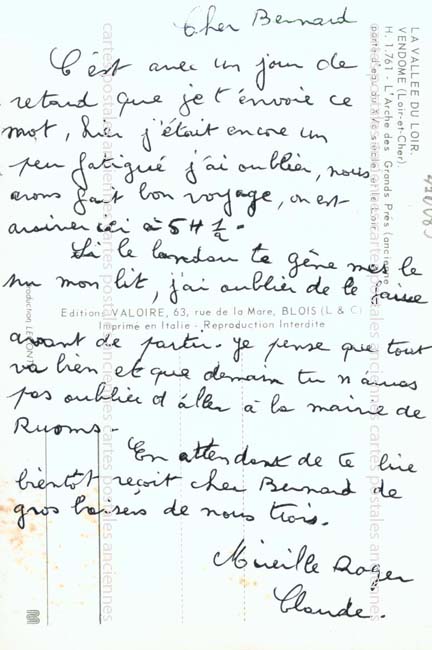 Cher Bernard
C'est avec un jour de
retard que je t'envoie ce
mot, hier j'était encore un
peu fatigué j'ai oublier, nous
avons fait bon voyage, on est
arriver ici à 5H ½.
Si le landau te gêne mes le
su mon lit, j'ai oublier de le
avant de partir. je pense que tout
va bien et que demain tu n'auras
pas oublier d'aller à la mairie de
Ruoms.
En attendant de te lire
bientôt reçoit cher Bernard de
gros baisers de nous trois.
Mireille Roger
Claude.
LA VALLEE DU LOIR.
VENDOME (Loir-et-Cher).
H. 1.761 - L'Arche des Grands Prés (ancienne
porte d'eau du XIVe siècle) et le Loir.
Editions VALOIRE, 63, rue de la Mare, BLOIS (L & C)
Imprimé en Italie - Reproduction Interdite
cartes postales anciennes cartes postales anciennes
cartes postales anciennes cartes postales anciennes cartes postales anciennes